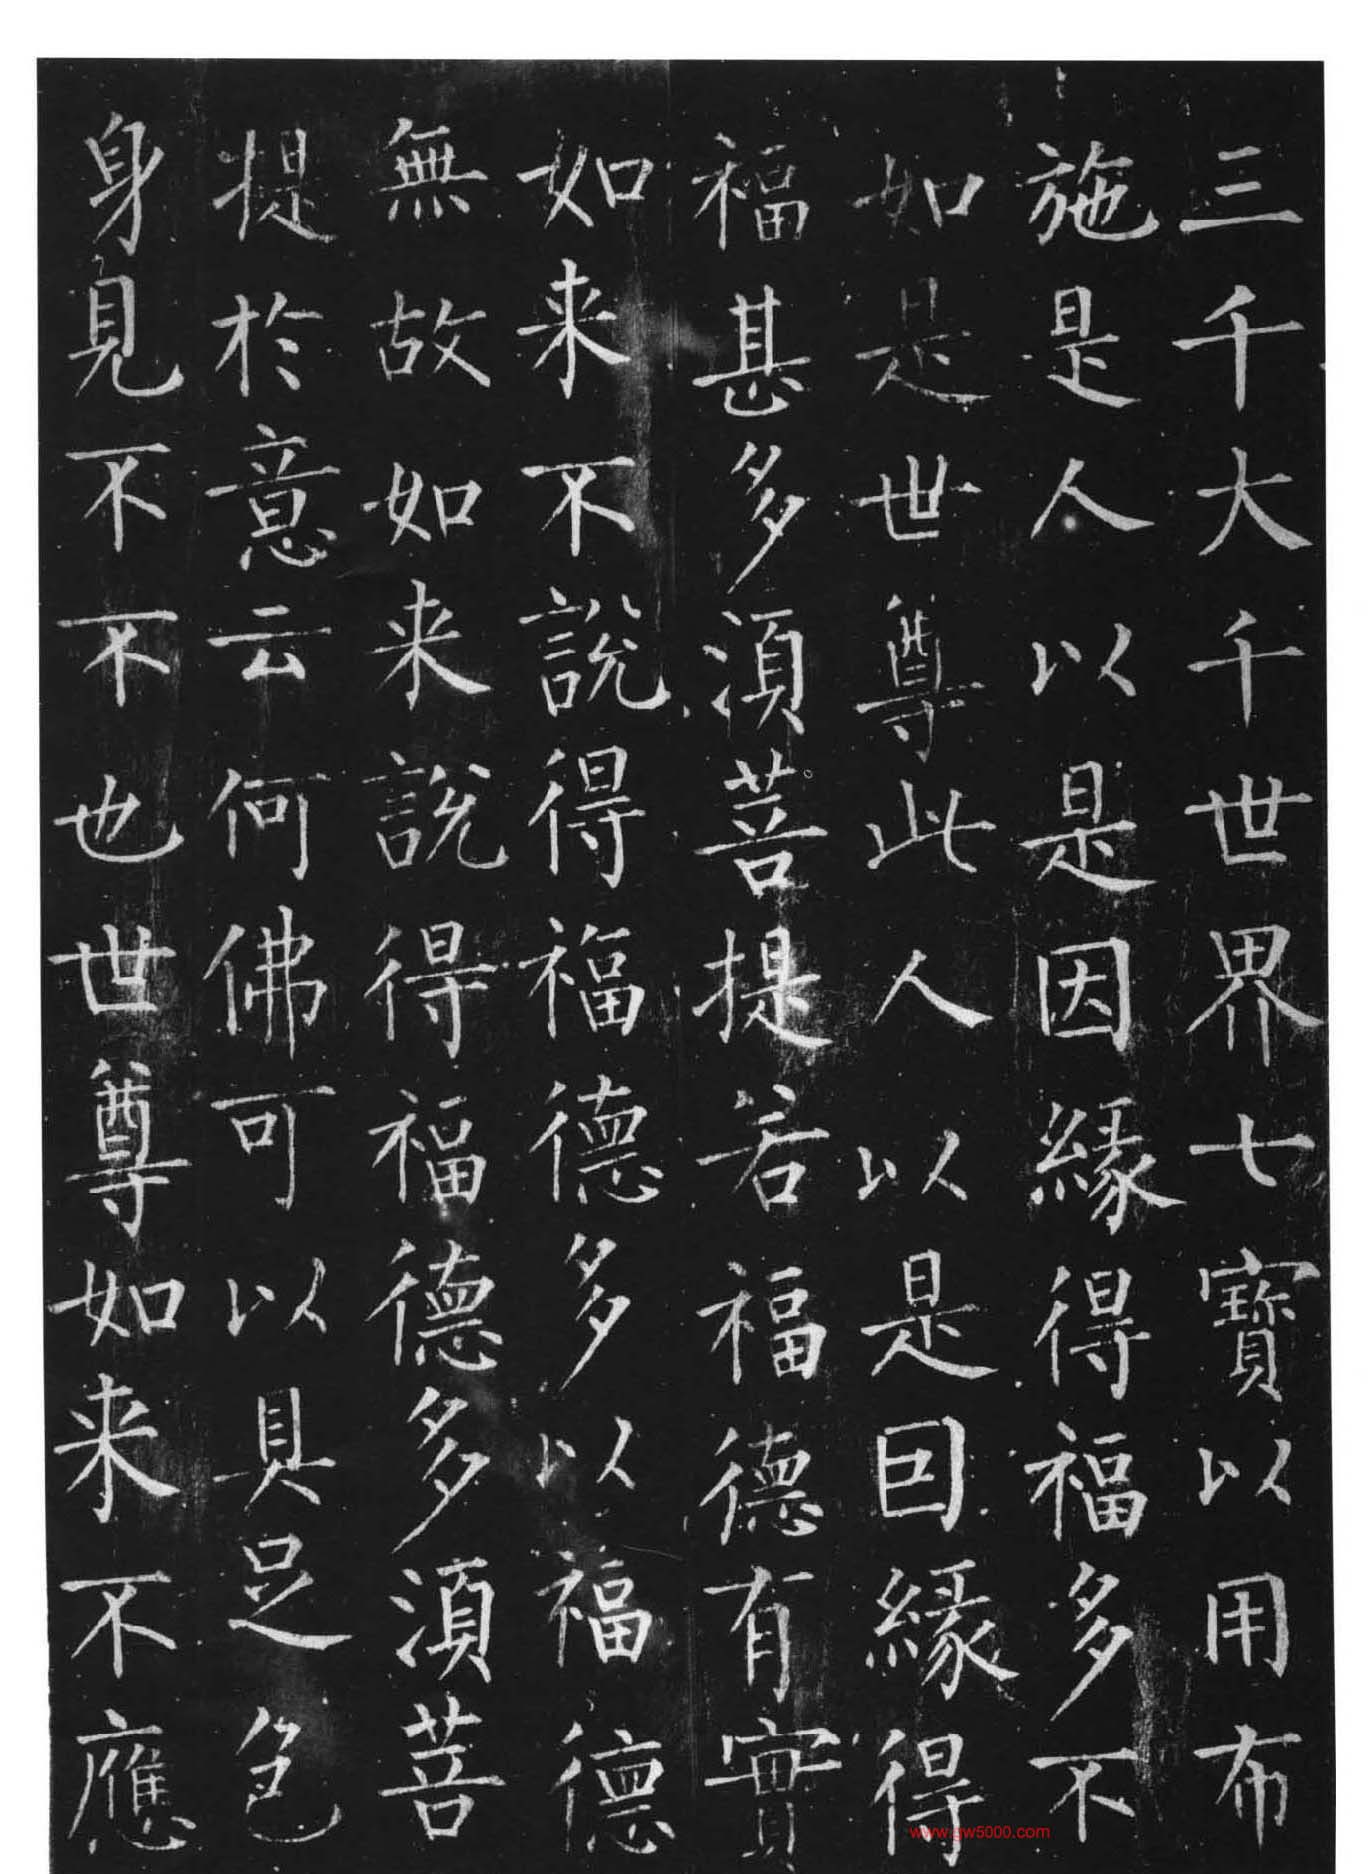 三千大千世界七寶以用布
施是人以是因緣得福多不
如是世尊此人以是因緣得
福甚多須菩提若福德有實
如来不說得福德多以福德
無故如来說得福德多須菩
提於意云何佛可以具足色
身見不不也世尊如来不應
www.gw5000.com